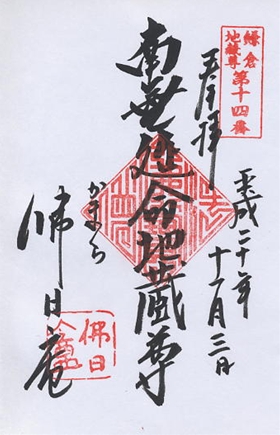 鎌倉
地蔵尊
第十四番
奉拝
平成二十年
十一月三日
南無延命地蔵尊
かまくら
佛日庵
佛日